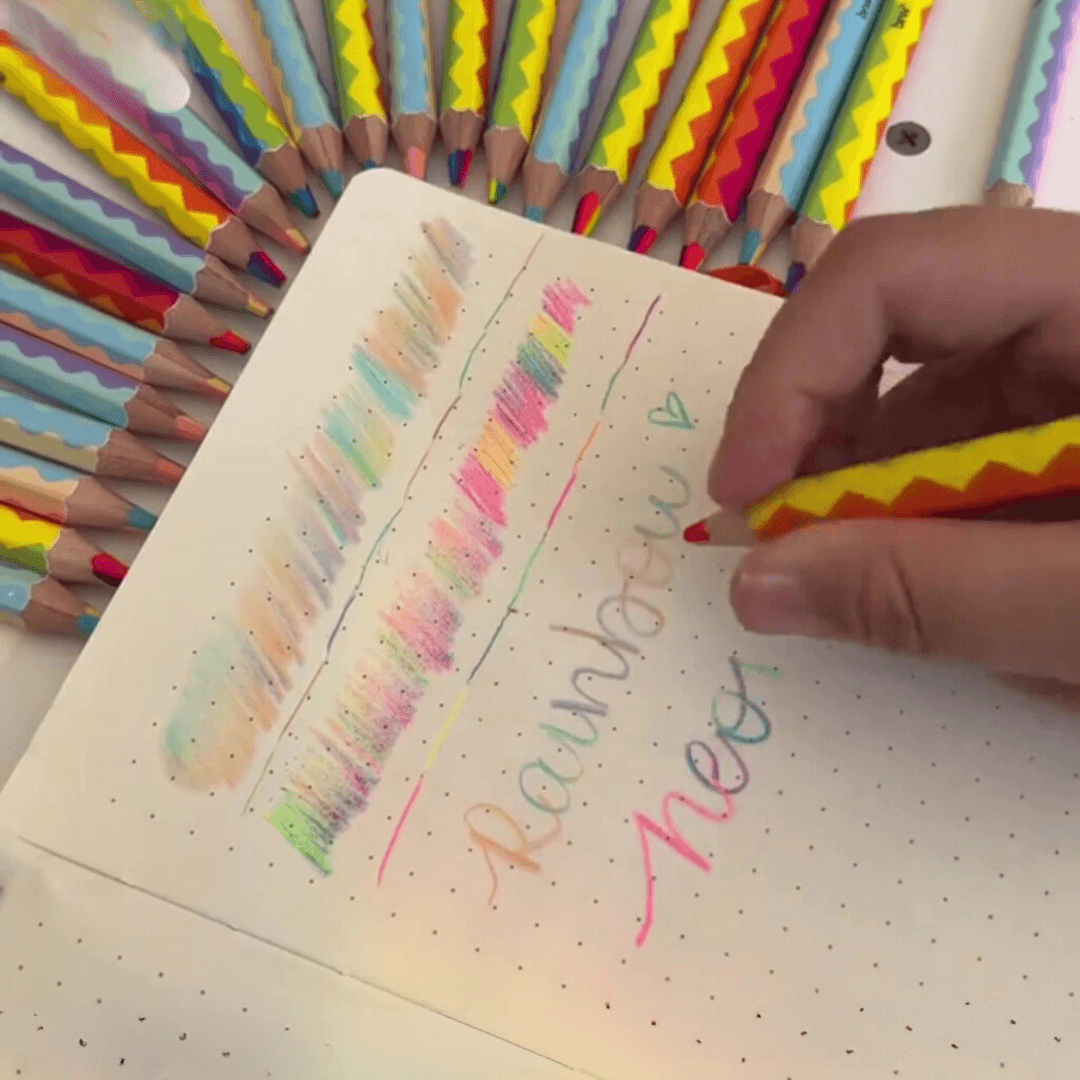 Rainbow ♡
neon